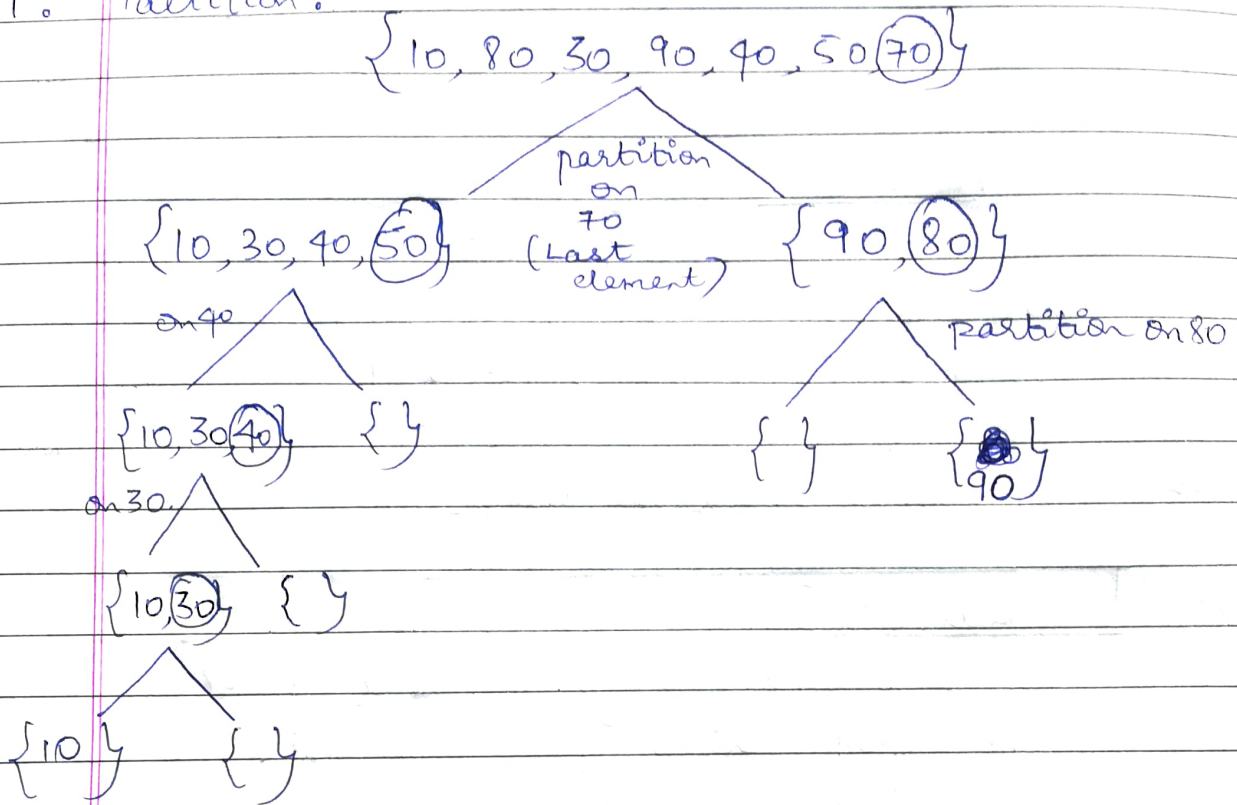 1. Partition:
{10, 80, 30, 90, 40, 50, 70}
partition
on
70
(Last
element)
{10, 30, 40, 50}
{90, 80}
on 40
partition on 80
{10, 30, 40}
{ }
{ }
{ 90 }
on 30
{10, 30}
{ }
{10}
{ }